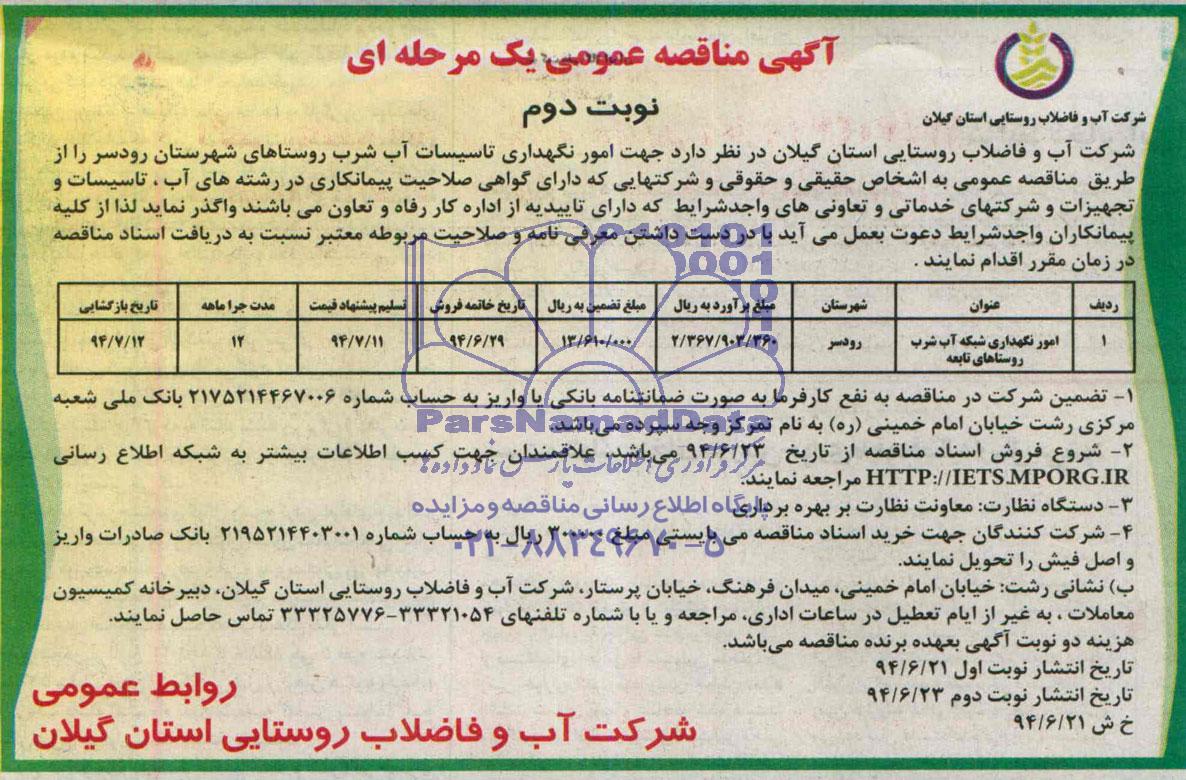 آگهی مناقصه عمومی یک مرحله ای
نوبت دوم
شرکت آب و فاضلاب روستایی استان گیلان
شرکت آب و فاضلاب روستایی استان گیلان در نظر دارد جهت امور نگهداری تاسیسات آب شرب روستاهای شهرستان رودسر را از
طریق مناقصه عمومی به اشخاص حقیقی و حقوقی و شرکتهایی که دارای گواهی صلاحیت پیمانکاری در رشته های آب ، تاسیسات و
تجهیزات و شرکتهای خدماتی و تعاونی های واجدشرایط که دارای تاییدیه از اداره کار رفاه و تعاون می باشند واگذر نماید لذا از کلیه
پیمانکاران واجدشرایط دعوت بعمل می آید با در دست داشتن معرفی نامه و صلاحیت مربوطه معتبر نسبت به دریافت اسناد مناقصه
در زمان مقرر اقدام نمایند .
ردیف عنوان شهرستان مبلغ برآورد به ریال مبلغ تضمین به ریال تاریخ خاتمه فروش تسلیم پیشنهاد قیمت مدت جرا ماهه تاریخ بازگشایی
۱ امور نگهداری شبکه آب شرب روستاهای تابعه رودسر ۲/۳۶۷/۹۰۳/۳۶۰ ۱۳/۶۱۰/۰۰۰ ۹۴/۶/۲۹ ۹۴/۷/۱۱ ۱۲ ۹۴/۷/۱۲
۱- تضمین شرکت در مناقصه به نفع کارفرما به صورت ضمانتنامه بانکی یا واریز به حساب شماره ۲۱۷۵۲۱۴۴۶۷۰۰۶ بانک ملی شعبه
مرکزی رشت خیابان امام خمینی (ره) به نام تمرکز وجه سپرده می‌باشد.
ParsNamadData
۲- شروع فروش اسناد مناقصه از تاریخ ۹۴/۶/۲۳ می‌باشد، علاقمندان جهت کسب اطلاعات بیشتر به شبکه اطلاع رسانی
HTTP://IETS.MPORG.IR مراجعه نمایند.
مرکز فرآوری اطلاعات پارس نماد داده ها
۳- دستگاه نظارت: معاونت نظارت بر بهره برداری
پایگاه اطلاع رسانی مناقصه و مزایده
۴- شرکت کنندگان جهت خرید اسناد مناقصه می بایستی مبلغ ریال به حساب شماره ۲۱۹۵۲۱۴۴۰۳۰۰۱ بانک صادرات واریز
۰۲۱-۸۸۳۴۹۶۷۰-۵
و اصل فیش را تحویل نمایند.
ب) نشانی رشت: خیابان امام خمینی، میدان فرهنگ، خیابان پرستار، شرکت آب و فاضلاب روستایی استان گیلان، دبیرخانه کمیسیون
معاملات ، به غیر از ایام تعطیل در ساعات اداری، مراجعه و یا با شماره تلفنهای ۳۳۳۲۱۰۵۴-۳۳۳۲۵۷۷۶ تماس حاصل نمایند.
هزینه دو نوبت آگهی بعهده برنده مناقصه می‌باشد.
تاریخ انتشار نوبت اول ۹۴/۶/۲۱
تاریخ انتشار نوبت دوم ۹۴/۶/۲۳
خ ش ۹۴/۶/۲۱
روابط عمومی
شرکت آب و فاضلاب روستایی استان گیلان